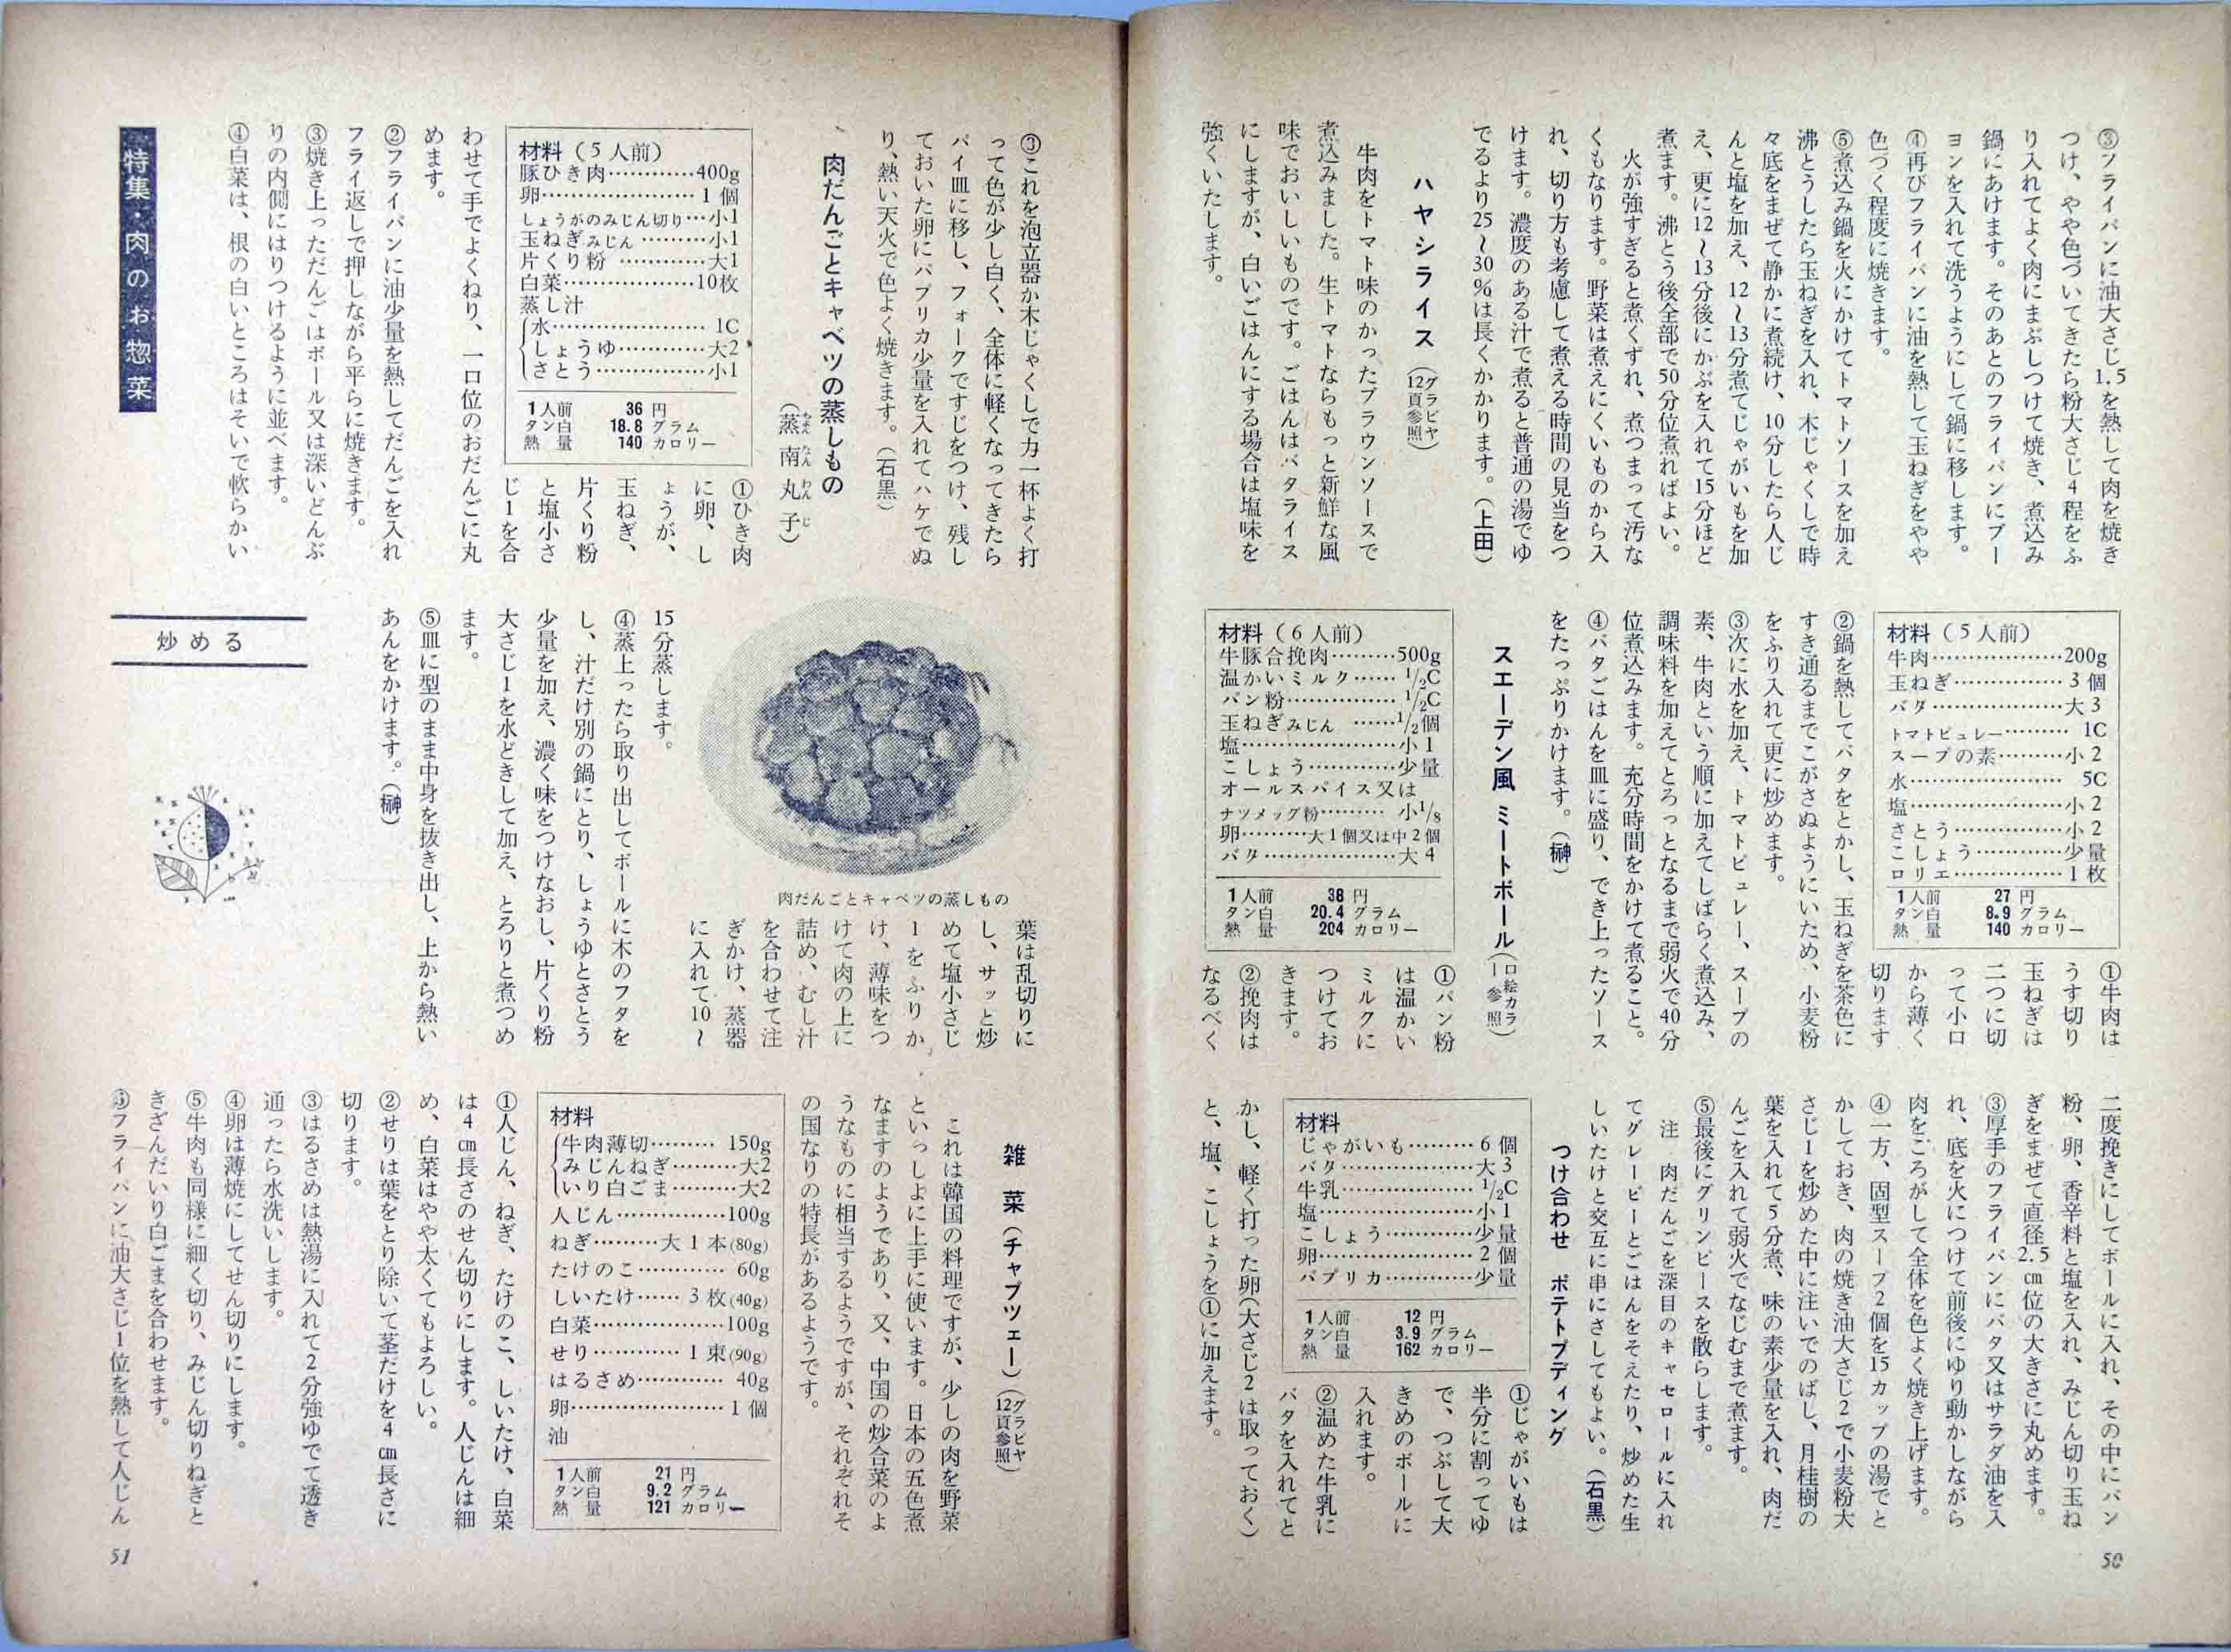 ③フライパンに油大さじ1.5を熱して肉を焼き
つけ、やや色づいてきたら粉大さじ4程をふ
り入れてよく肉にまぶしつけて焼き、煮込み
鍋にあけます。そのあとのフライパンにブー
ヨンを入れて洗うようにして鍋に移します。
④再びフライパンに油を熱して玉ねぎをやや
色づく程度に焼きます。
⑤煮込み鍋を火にかけてトマトソースを加え
沸とうしたら玉ねぎを入れ、木じゃくしで時
々底をまぜて静かに煮続け、10分したら人じ
んと塩を加え、12〜13分煮てじゃがいもを加
え、更に12〜13分後にかぶを入れて15分ほど
煮ます。沸とう後全部で50分位煮ればよい。
火が強すぎると煮くずれ、煮つまって汚な
くもなります。野菜は煮えにくいものから入
れ、切り方も考慮して煮える時間の見当をつ
けます。濃度のある汁で煮ると普通の湯でゆ
でるより25〜30%は長くかかります。（上田）
ハヤシライス（グラビヤ12頁参照）
牛肉をトマト味のかったブラウンソースで
煮込みました。生トマトならもっと新鮮な風
味でおいしいものです。ごはんはバタライス
にしますが、白いごはんにする場合は塩味を
強くいたします。
材料（5人前）
牛肉………………200g
玉ねぎ……………3個
バタ………………大3
トマトピュレー………1C
スープの素………小2
水…………………5C
塩…………………小2
さとう……………小2
こしょう…………少量
ロリエ……………1枚
1人前 27円
タン白 8.9グラム
熱量 140カロリー
①牛肉は
うす切り
玉ねぎは
二つに切
って小口
から薄く
切ります
②鍋を熱してバタをとかし、玉ねぎを茶色に
すき通るまでこがさぬようにいため、小麦粉
をふり入れて更に炒めます。
③次に水を加え、トマトピュレー、スープの
素、牛肉という順に加えてしばらく煮込み、
調味料を加えてとろっとなるまで弱火で40分
位煮込みます。充分時間をかけて煮ること。
④バタごはんを皿に盛り、でき上ったソース
をたっぷりかけます。（榊）
スエーデン風 ミートボール（口絵カラー参照）
材料（6人前）
牛豚合挽肉………500g
温かいミルク……1/2C
パン粉……………1/2C
玉ねぎみじん……1/2個
塩…………………小1
こしょう…………少量
オールスパイス又は
ナツメッグ粉………小1/8
卵………大1個又は中2個
バタ………………大4
1人前 38円
タン白 20.4グラム
熱量 204カロリー
①パン粉
は温かい
ミルクに
つけてお
きます。
②挽肉は
なるべく
二度挽きにしてボールに入れ、その中にパン
粉、卵、香辛料と塩を入れ、みじん切り玉ね
ぎをまぜて直径2.5㎝位の大きさに丸めます。
③厚手のフライパンにバタ又はサラダ油を入
れ、底を火につけて前後にゆり動かしながら
肉をころがして全体を色よく焼き上げます。
④一方、固型スープ2個を15カップの湯でと
かしておき、肉の焼き油大さじ2で小麦粉大
さじ1を炒めた中に注いでのばし、月桂樹の
葉を入れて5分煮、味の素少量を入れ、肉だ
んごを入れて弱火でなじむまで煮ます。
⑤最後にグリンピースを散らします。
注 肉だんごを深目のキャセロールに入れ
てグレービーとごはんをそえたり、炒めた生
しいたけと交互に串にさしてもよい。（石黒）
つけ合わせ ポテトプディング
材料
じゃがいも………6個
バタ………………大3
牛乳………………1/2C
塩…………………小1
こしょう…………少量
卵…………………2個
パプリカ…………少量
1人前 12円
タン白 3.9グラム
熱量 162カロリー
①じゃがいもは
半分に割ってゆ
で、つぶして大
きめのボールに
入れます。
②温めた牛乳に
バタを入れてと
かし、軽く打った卵（大さじ2は取っておく）
と、塩、こしょうを①に加えます。
50
③これを泡立器か木じゃくしで力一杯よく打
って色が少し白く、全体に軽くなってきたら
パイ皿に移し、フォークですじをつけ、残し
ておいた卵にパプリカ少量を入れてハケでぬ
り、熱い天火で色よく焼きます。（石黒）
肉だんごとキャベツの蒸しもの
（蒸南丸子）
ちょん なん わん じ
材料（5人前）
豚ひき肉…………400g
卵…………………1個
しょうがのみじん切り…小1
玉ねぎみじん………小1
片くり粉…………大1
白菜………………10枚
蒸し汁
水…………………1C
しょうゆ…………大2
さとう……………小1
1人前 36円
タン白 18.8グラム
熱量 140カロリー
①ひき肉
に卵、し
ょうが、
玉ねぎ、
片くり粉
と塩小さ
じ1を合
わせて手でよくねり、一口位のおだんごに丸
めます。
②フライパンに油少量を熱してだんごを入れ
フライ返しで押しながら平らに焼きます。
③焼き上っただんごはボール又は深いどんぶ
りの内側にはりつけるように並べます。
④白菜は、根の白いところはそいで軟らかい
特集・肉のお惣菜
肉だんごとキャベツの蒸しもの
葉は乱切りに
し、サッと炒
めて塩小さじ
1をふりか
け、薄味をつ
けて肉の上に
詰め、むし汁
を合わせて注
ぎかけ、蒸器
に入れて10〜
15分蒸します。
④蒸上ったら取り出してボールに木のフタを
し、汁だけ別の鍋にとり、しょうゆとさとう
少量を加え、濃く味をつけなおし、片くり粉
大さじ1を水どきして加え、とろりと煮つめ
ます。
⑤皿に型のまま中身を抜き出し、上から熱い
あんをかけます。（榊）
炒める
雑菜（チャプツェー）（グラビヤ12頁参照）
これは韓国の料理ですが、少しの肉を野菜
といっしょに上手に使います。日本の五色煮
なますのようであり、又、中国の炒合菜のよ
うなものに相当するようですが、それぞれそ
の国なりの特長があるようです。
材料
牛肉薄切………150g
みじんねぎ………大2
いり白ごま………大2
人じん……………100g
ねぎ………大1本(80g)
たけのこ…………60g
しいたけ……3枚(40g)
白菜………………100g
せり…………1束(90g)
はるさめ…………40g
卵…………………1個
油
1人前 21円
タン白 9.2グラム
熱量 121カロリー
①人じん、ねぎ、たけのこ、しいたけ、白菜
は4㎝長さのせん切りにします。人じんは細
め、白菜はやや太くてもよろしい。
②せりは葉をとり除いて茎だけを4㎝長さに
切ります。
③はるさめは熱湯に入れて2分強ゆでて透き
通ったら水洗いします。
④卵は薄焼にしてせん切りにします。
⑤牛肉も同様に細く切り、みじん切りねぎと
きざんだいり白ごまを合わせます。
⑥フライパンに油大さじ1位を熱して人じん
51